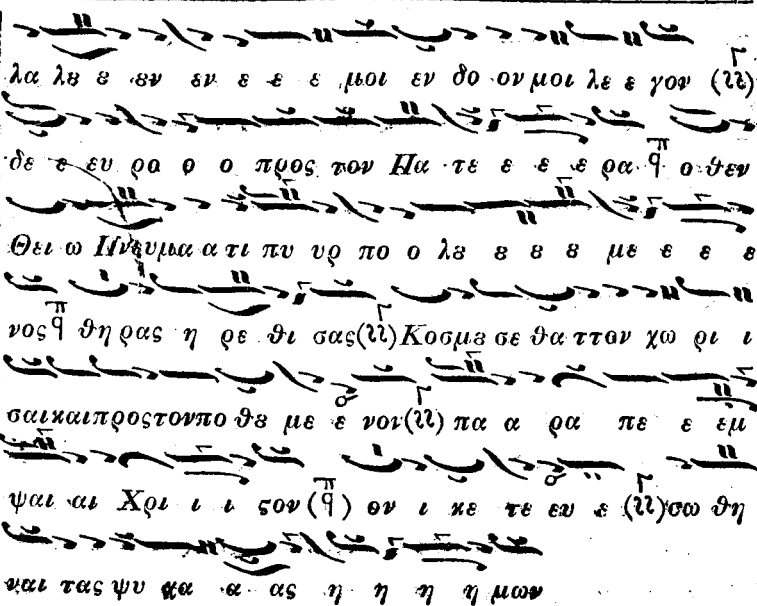 λα λȣ ȣ ȣν εν ε ε ε μοι εν δο ον μοι λε ε γον
δε ε ευ ρο ο ο προς τον Πα τε ε ε ε ρα ο θεν
Θει ω Πνευμα α τι πυ υρ πο ο λȣ ȣ ȣ ȣ με ε ε ε
νος θη ρας η ρε θι σας Κοσμȣ σε θα ττον χω ρι ι
σαι και προς τον πο θȣ με ε νον πα α ρα πε ε εμ
ψαι αι Χρι ι ι ϛον ον ι κε τε ευ ε σω θη
ναι τας ψυ χα α ας η η η η μων